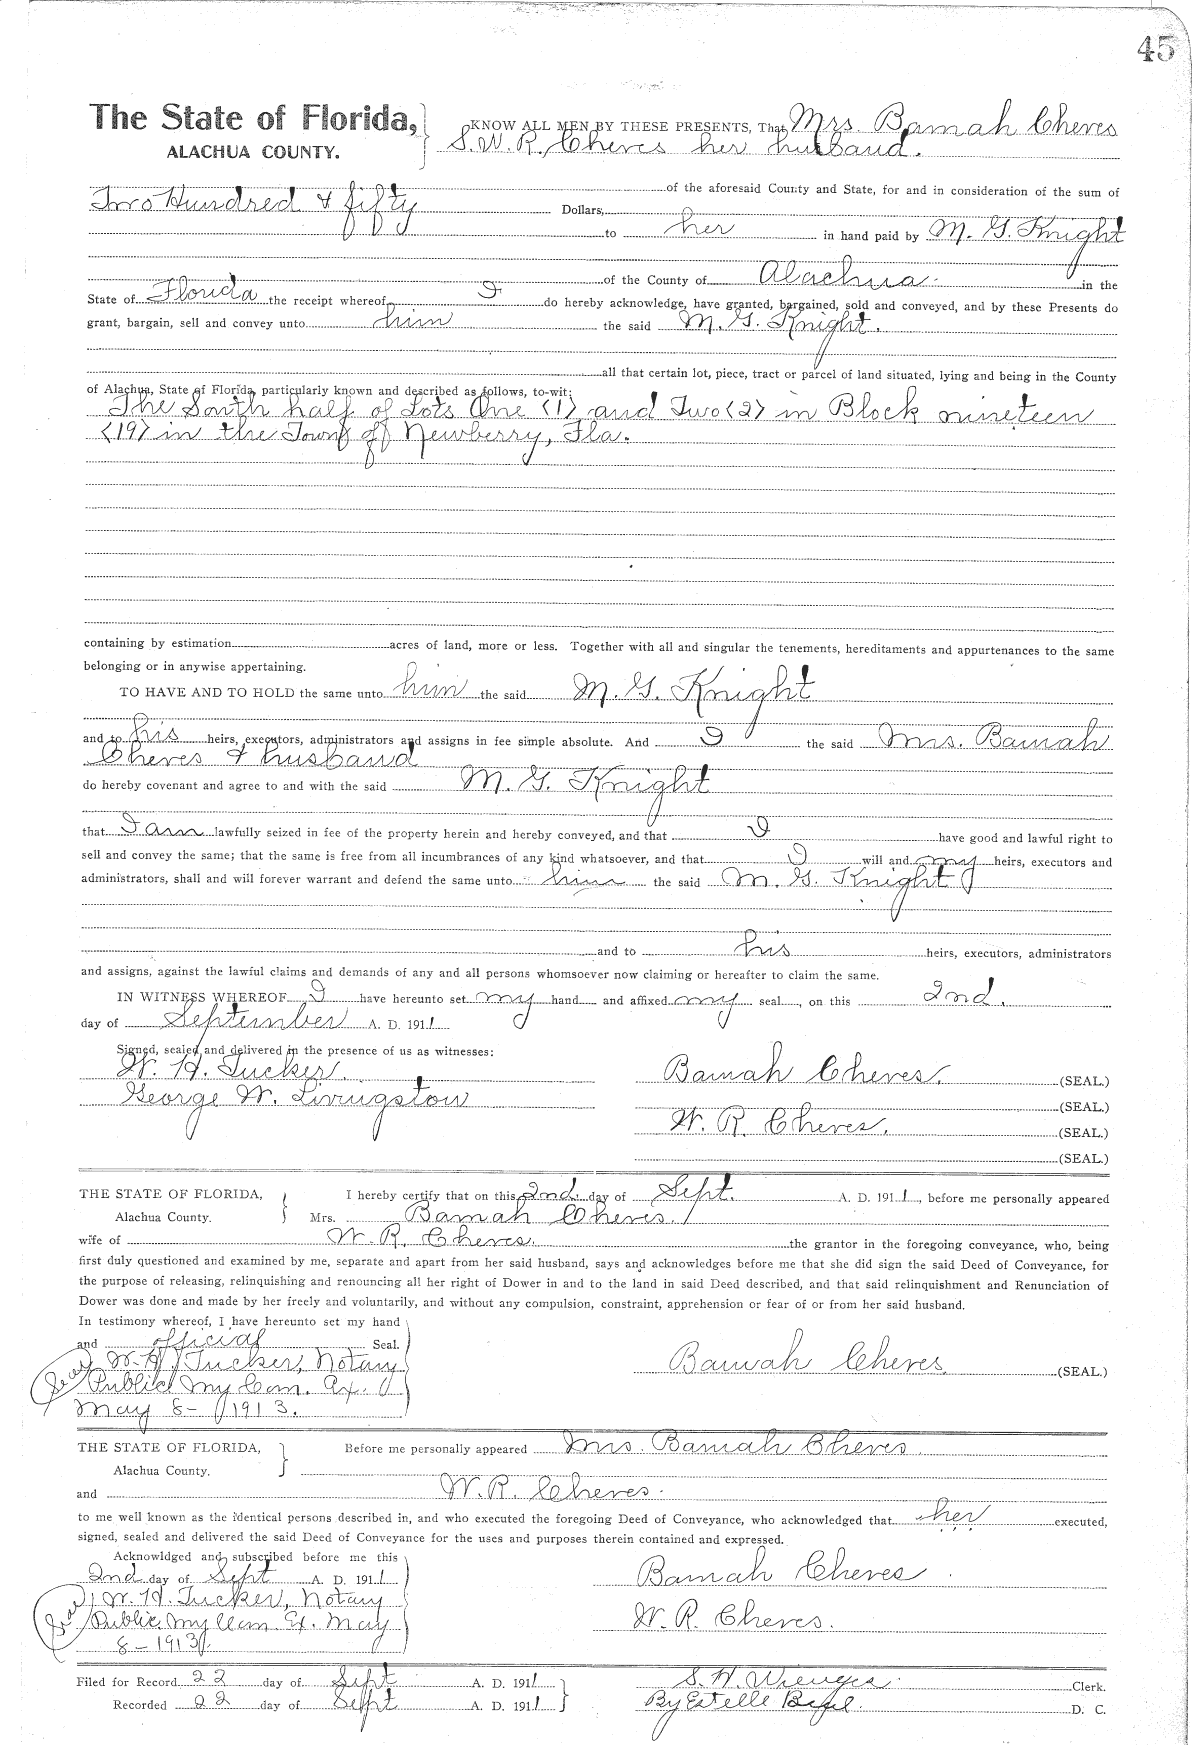 45
The State of Florida, KNOW ALL MEN BY THESE PRESENTS, That Mrs. Bamah Cheves
ALACHUA COUNTY. S.W.R. Cheves her husband.
of the aforesaid County and State, for and in consideration of the sum of
Two Hundred & fifty Dollars,
to her in hand paid by M. G. Knight
of the County of Alachua. in the
State of Florida the receipt whereof I do hereby acknowledge, have granted, bargained, sold and conveyed, and by these Presents do
grant, bargain, sell and convey unto him the said M. G. Knight.
all that certain lot, piece, tract or parcel of land situated, lying and being in the County
of Alachua, State of Florida, particularly known and described as follows, to-wit:
The South half of Lots One (1) and Two (2) in Block nineteen
(19) in the Town of Newberry, Fla.
containing by estimation acres of land, more or less. Together with all and singular the tenements, hereditaments and appurtenances to the same
belonging or in anywise appertaining.
TO HAVE AND TO HOLD the same unto him the said M. G. Knight
and to his heirs, executors, administrators and assigns in fee simple absolute. And I the said Mrs. Bamah
Cheves & husband
do hereby covenant and agree to and with the said M. G. Knight
that I am lawfully seized in fee of the property herein and hereby conveyed, and that I have good and lawful right to
sell and convey the same; that the same is free from all incumbrances of any kind whatsoever, and that I will and my heirs, executors and
administrators, shall and will forever warrant and defend the same unto him the said M. G. Knight
and to his heirs, executors, administrators
and assigns, against the lawful claims and demands of any and all persons whomsoever now claiming or hereafter to claim the same.
IN WITNESS WHEREOF I have hereunto set my hand and affixed my seal, on this 2nd.
day of September A. D. 1911.
Signed, sealed and delivered in the presence of us as witnesses:
W. H. Tucker. Bamah Cheves. (SEAL.)
George W. Livingston (SEAL.)
W. R. Cheves. (SEAL.)
(SEAL.)
THE STATE OF FLORIDA, I hereby certify that on this 2nd. day of Sept. A. D. 1911, before me personally appeared
Alachua County. Mrs. Bamah Cheves.
wife of W. R. Cheves. the grantor in the foregoing conveyance, who, being
first duly questioned and examined by me, separate and apart from her said husband, says and acknowledges before me that she did sign the said Deed of Conveyance, for
the purpose of releasing, relinquishing and renouncing all her right of Dower in and to the land in said Deed described, and that said relinquishment and Renunciation of
Dower was done and made by her freely and voluntarily, and without any compulsion, constraint, apprehension or fear of or from her said husband.
In testimony whereof, I have hereunto set my hand
and official Seal.
Seal W. H. Tucker, Notary Bamah Cheves. (SEAL.)
Public My Com. Ex.
May 8-1913.
THE STATE OF FLORIDA, Before me personally appeared Mrs. Bamah Cheves
Alachua County.
and W. R. Cheves.
to me well known as the identical persons described in, and who executed the foregoing Deed of Conveyance, who acknowledged that her executed,
signed, sealed and delivered the said Deed of Conveyance for the uses and purposes therein contained and expressed.
Acknowldged and subscribed before me this
2nd day of Sept A. D. 1911 Bamah Cheves
Seal W. H. Tucker, Notary
Public. My Com. Ex. May W. R. Cheves.
8-1913.
Filed for Record 22 day of Sept A. D. 1911 S. H. Wienges. Clerk.
Recorded 22 day of Sept A. D. 1911 By Estelle D. C.